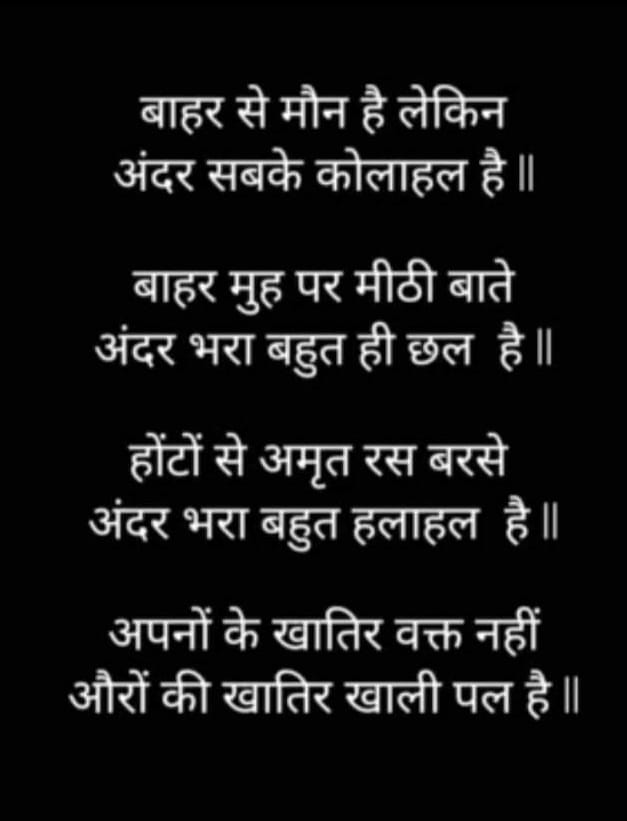 बाहर से मौन है लेकिन
अंदर सबके कोलाहल है॥
बाहर मुह पर मीठी बाते
अंदर भरा बहुत ही छल  है॥
होंटों से अमृत रस बरसे
अंदर भरा बहुत हलाहल  है॥
अपनों के खातिर वक्त नहीं
औरों की खातिर खाली पल है॥